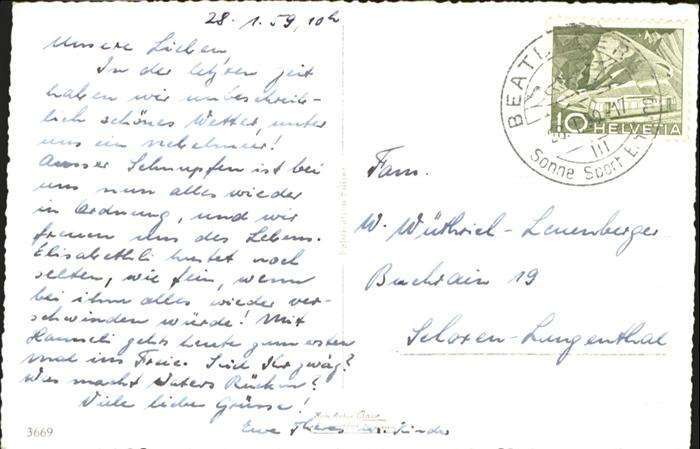 28. 1. 59, 10h
Unsere Lieben,
In der letzten Zeit
haben wir unbeschreib-
lich schönes Wetter, unter
uns ein Nebelmeer!
Ausser Schnupfen ist bei
uns nun alles wieder
in Ordnung, und wir
freuen uns des Lebens.
Elisabethli hustet noch
selten, wie fein, wenn
bei ihm alles wieder ver-
schwinden würde! Mit
Hansueli gehts heute zum ersten
mal ins Freie. Sind Ihr zwäg?
Was macht Vaters Rücken?
Viele liebe Grüsse!
Eure Theres u. Kinder
3669
BEATENBERG
Sonne Sport
III
10 HELVETIA
Fam.
W. Wüthrich-Leuenberger
Buchrain 19
Schoren-Langenthal